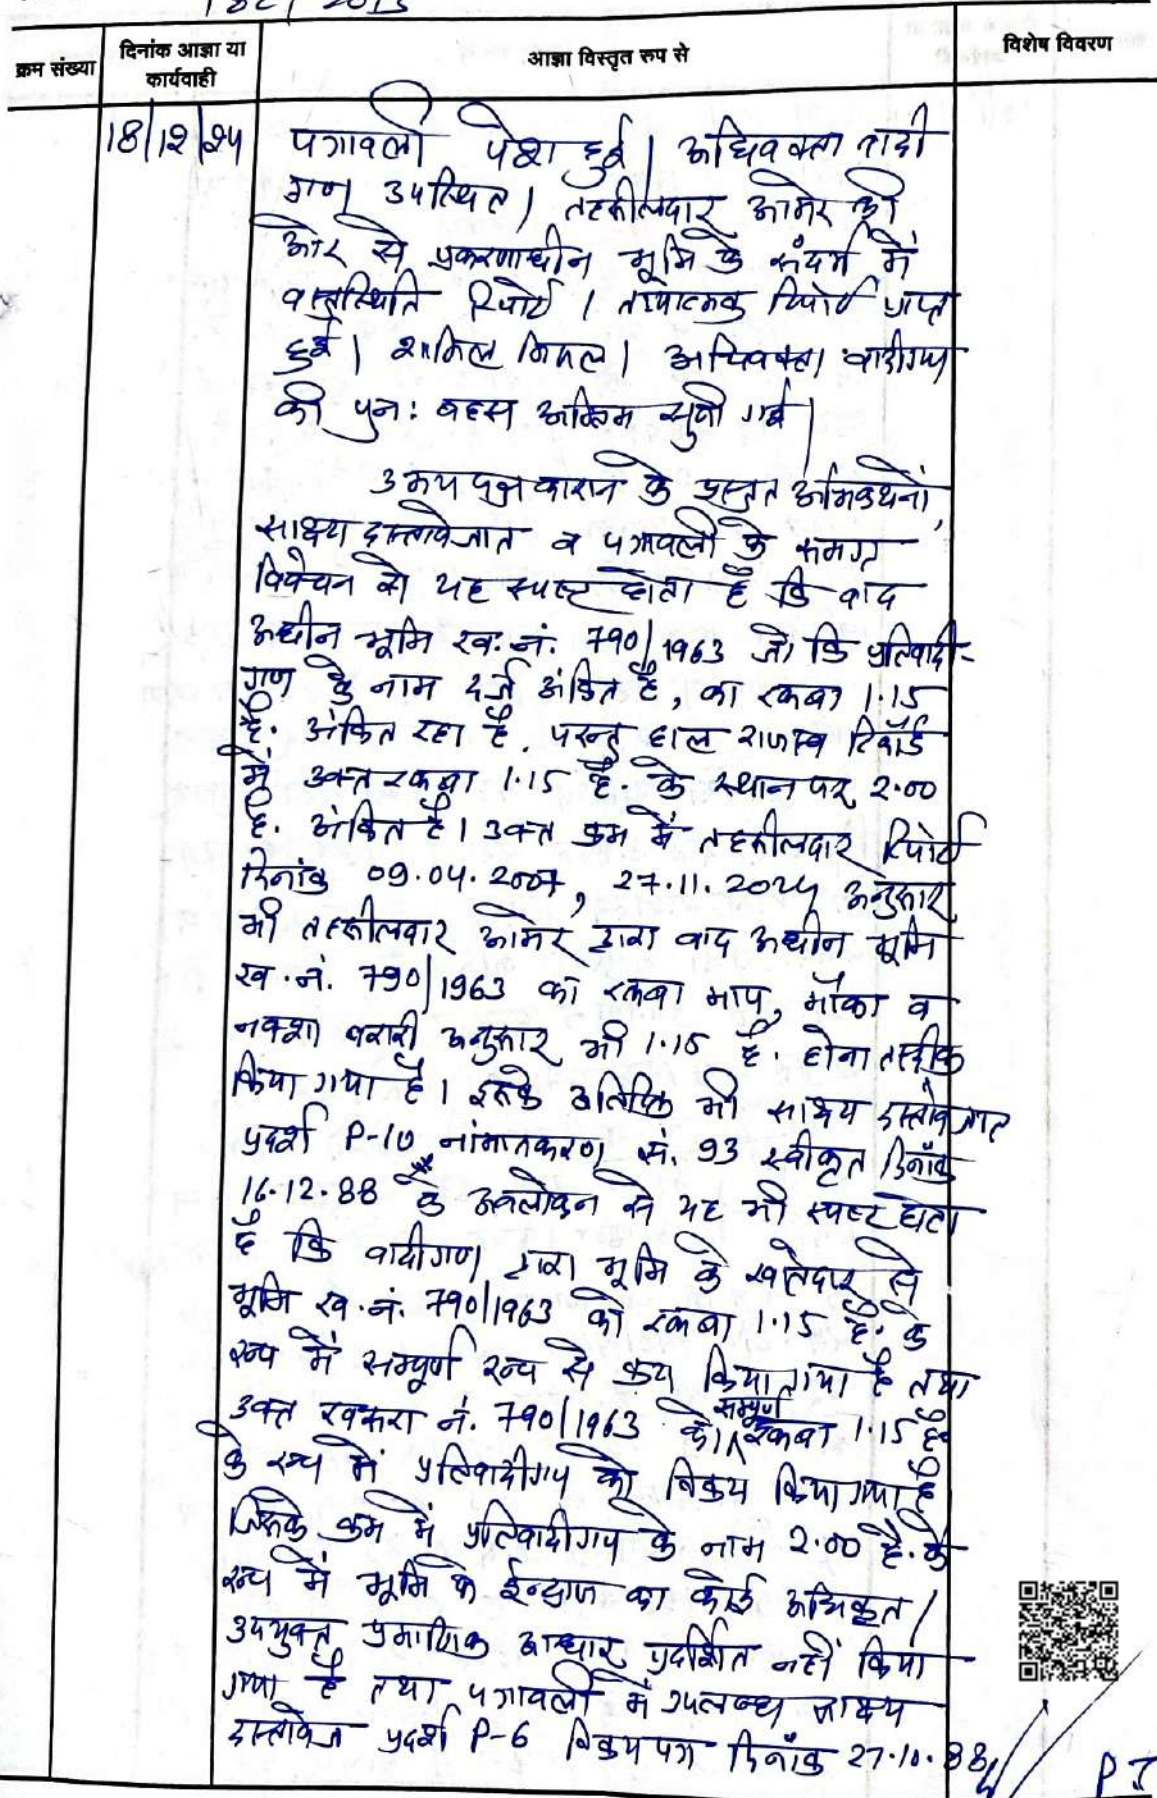 182/2013
क्रम संख्या
दिनांक आज्ञा या
कार्यवाही
आज्ञा विस्तृत रूप से
विशेष विवरण
18/12/24
पत्रावली पेश हुई। अधिवक्ता वादी
गण उपस्थित। तहसीलदार आमेर की
ओर से प्रकरणाधीन भूमि के संदर्भ में
वस्तुस्थिति रिपोर्ट / तथ्यात्मक रिपोर्ट प्राप्त
हुई। शामिल मिसल। अधिवक्ता वादीगण
की पुनः बहस अन्तिम सुनी गई।
उभय पक्षकारान के प्रस्तुत अभिकथनों,
साक्ष्य दस्तावेजात व पत्रावली के समग्र
विवेचन से यह स्पष्ट होता है कि वाद
अधीन भूमि ख. नं. 790/1963 जो कि प्रतिवादी-
गण के नाम दर्ज अंकित है, का रकबा 1.15
है. अंकित रहा है. परन्तु हाल राजस्व रिकॉर्ड
में उक्त रकबा 1.15 है. के स्थान पर 2.00
है. अंकित है। उक्त क्रम में तहसीलदार रिपोर्ट
दिनांक 09.04.2007, 27.11.2024 अनुसार
भी तहसीलदार आमेर द्वारा वाद अधीन भूमि
ख. नं. 790/1963 का रकबा माप, मौका व
नक्शा बरारी अनुसार भी 1.15 है. होना तस्दीक
किया गया है। इसके अतिरिक्त भी साक्ष्य दस्तावेजात
प्रदर्श P-10 नामांतकरण सं. 93 स्वीकृत दिनाँक
16.12.88 के अवलोकन से यह भी स्पष्ट होता
है कि वादीगण द्वारा भूमि के खातेदार से
भूमि ख. नं. 790/1963 को रकबा 1.15 है. के
रूप में सम्पूर्ण रूप से क्रय किया गया है तथा
उक्त खसरा नं. 790/1963 को सम्पूर्ण रकबा 1.15 है.
के रूप में प्रतिवादीगण को विक्रय किया गया है
जिसके क्रम में प्रतिवादीगण के नाम 2.00 है. के
रूप में भूमि के ईन्द्राज का कोई अधिकृत /
उपयुक्त प्रमाणिक आधार प्रदर्शित नहीं किया
गया है तथा पत्रावली में उपलब्ध साक्ष्य
दस्तावेज प्रदर्श P-6 विक्रय पत्र दिनाँक 27.10.88